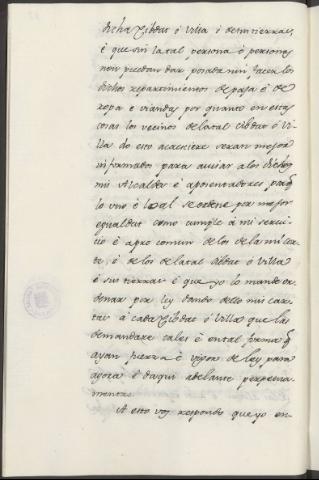 dicha Cibdat ó Villa é de sus tierras,
é que sin la tal persona ó personas
non puedan dar posada nin facer los
dichos repartimientos de paja é de
ropa é viandas por quanto en estas
cosas los vecinos de la tal cibdat ó Vi-
lla do esto acaesciere seran mejor
informados para avisar a los dichos
mis Alcaldes é aposentadores para q
lo uno é lo al se ordene por mejor
egualdat como cumple á mi servi-
cio é a pro comun de los de la mi cor-
te, é de los de la tal cibdat ó Villa
é sus tierras é que yo lo mande or-
denar por ley dando dello mis car-
tas á cada Cibdat ó Villa que las
demandare tales é en tal forma q
ayan fuerza é vigor de ley para
agora é daqui adelante perpetua-
mente.
A esto vos respondo que yo en-